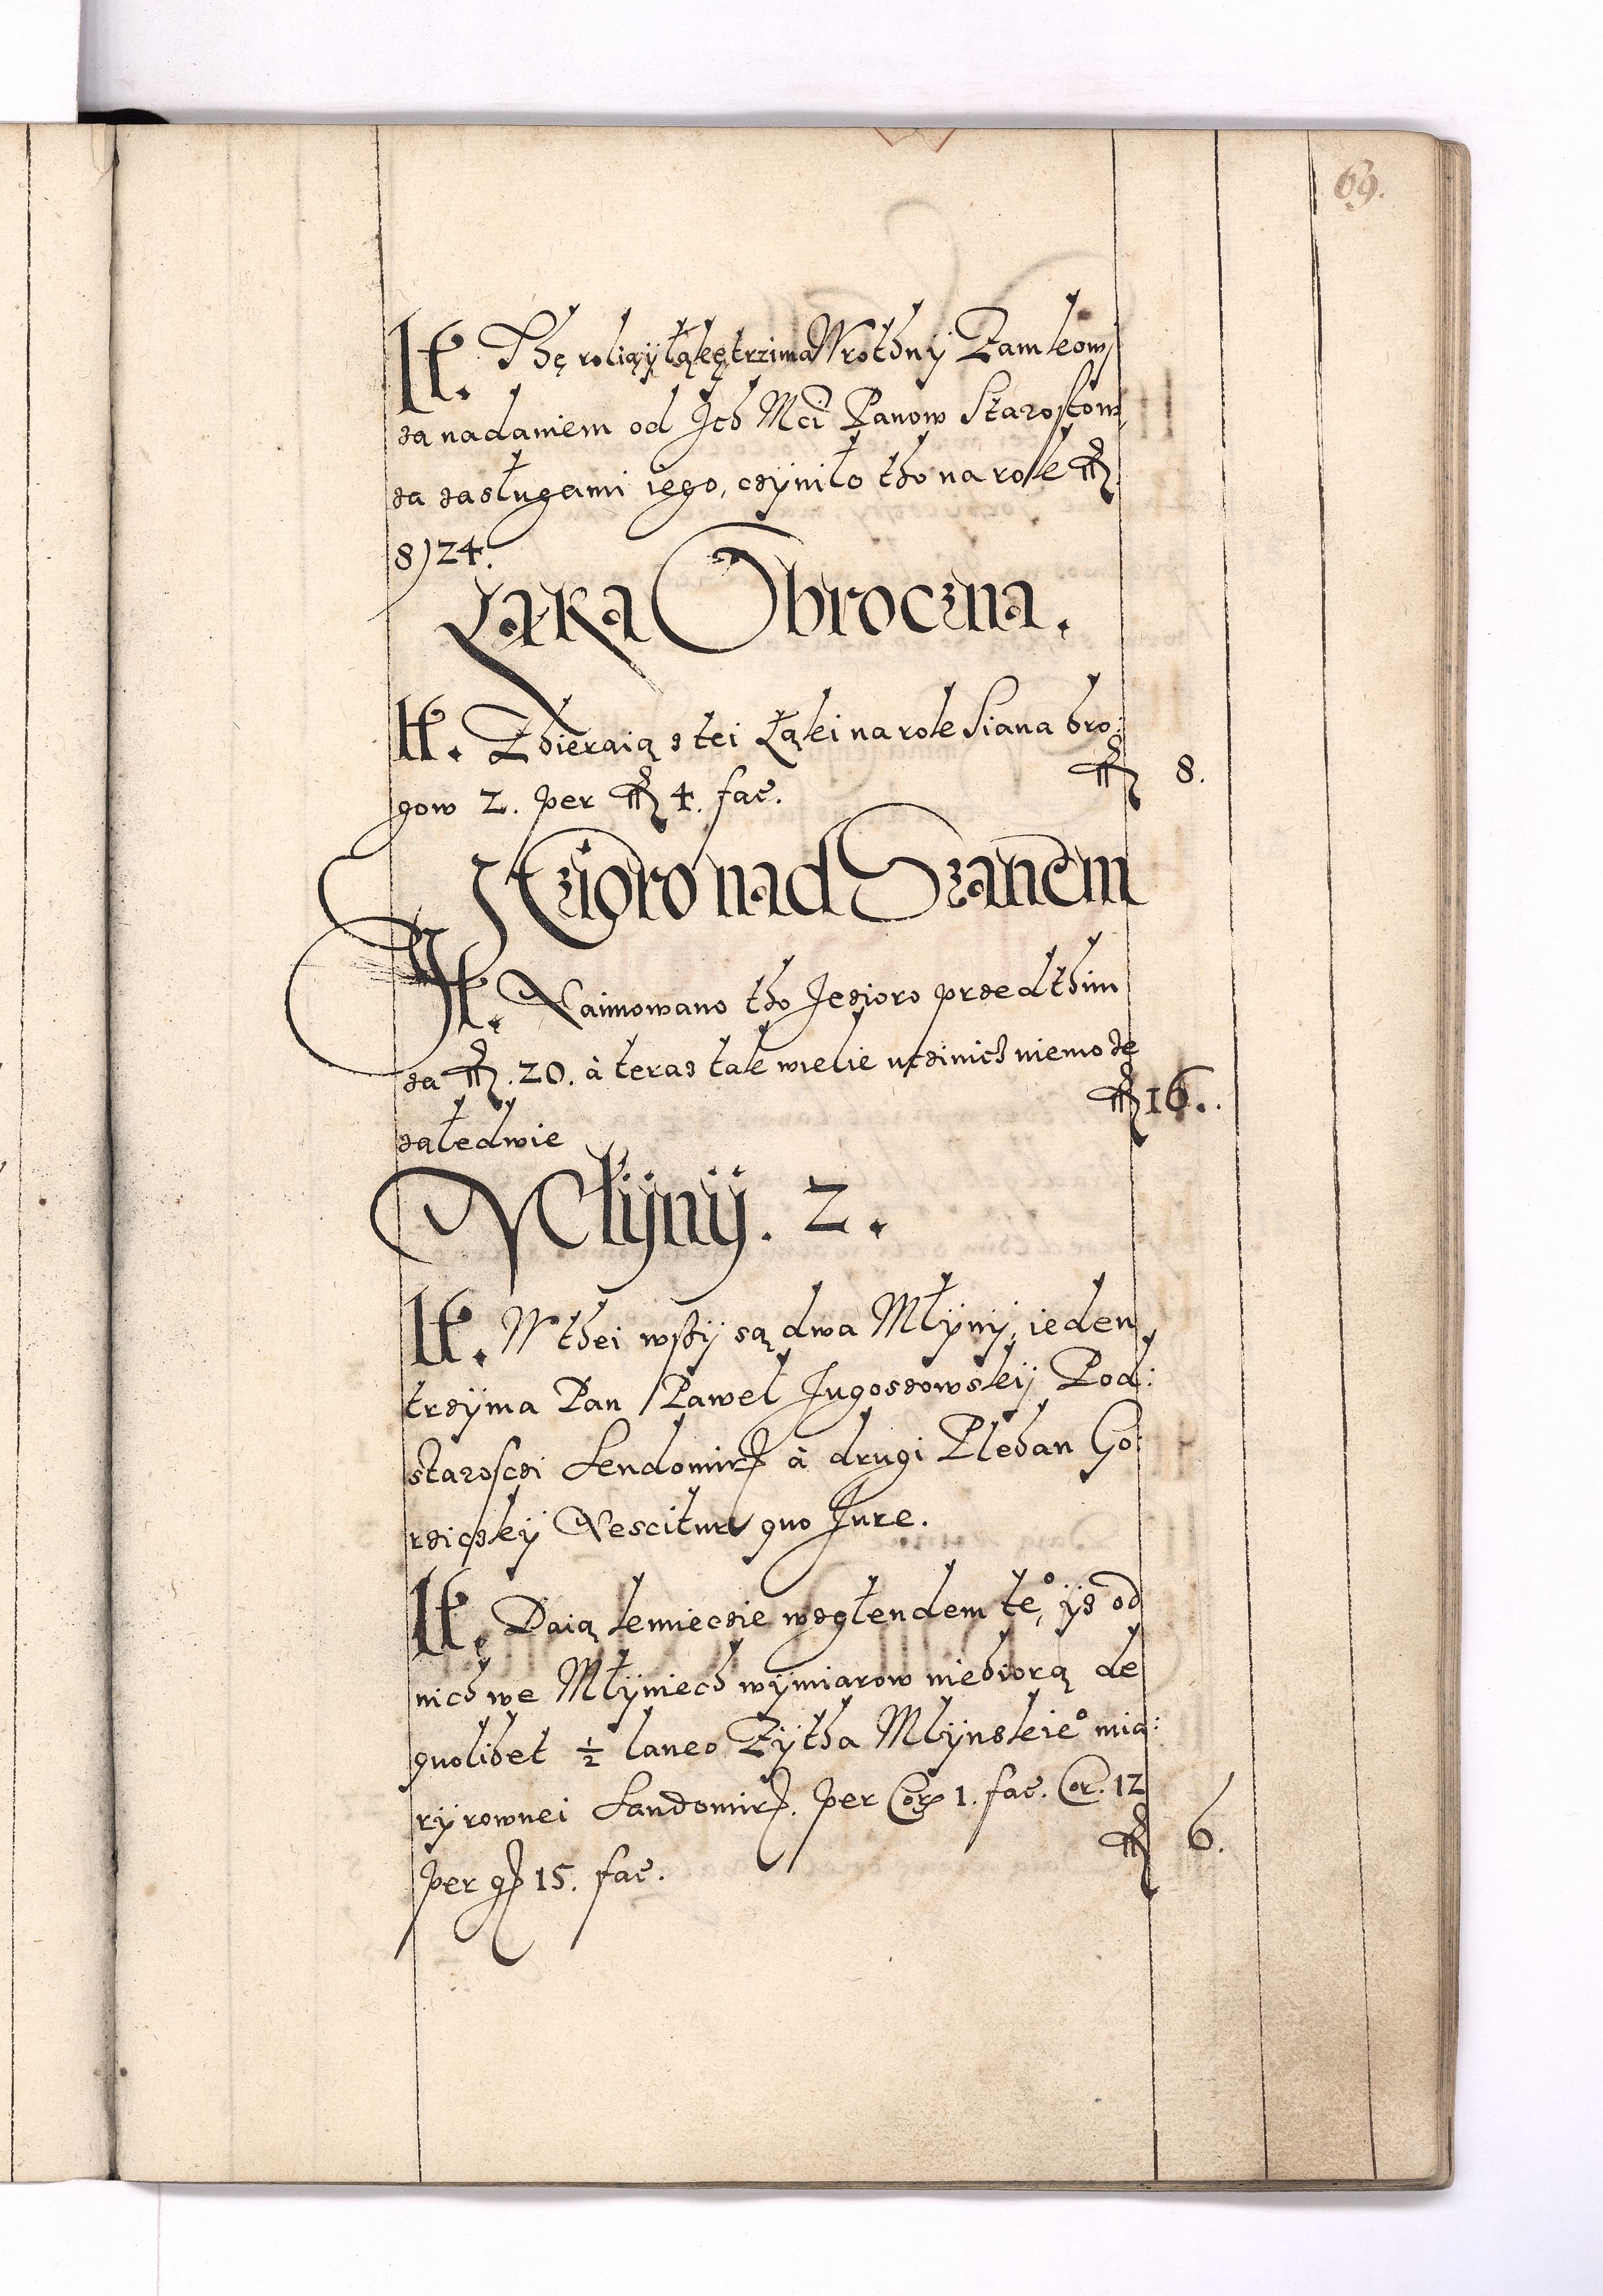 69.
It. Thę rolią y łąkę trzima Wrothny Zamkowi
za nadaniem od Ich Mci Panow Starostow,
za zasługami iego, czyniło tho na rok fl
8/24.
Łąka Obroczna.
It. Zbieraią z tei Łąki na rok Siana bro:
gow 2. per fl 4. fac. fl 8.
Iezioro nad Szanem
It. Naimowano tho Iezioro przedthim
za fl. 20. à teraz tak wielie uczinich niemoże
załedwie fl 16.
Młijnij. 2.
It. W thei wsij są dwa Młijnij, ieden
trzijma Pan Paweł Jugoszowskij Pod:
starosczi Sendomirz à drugi Pleban Go:
rziczkij Nescitur quo Jure.
It. Daią kmieczie wzgłendem teo, ijz od
nich we Młijniech wijmiarow niebiorą de
quolibet 1/2 laneo Zijtha Mlijnskieo mia:
rij rownei Sandomirz. per Cor 1. fac. Cor. 12
per gr 15. fac. fl 6.